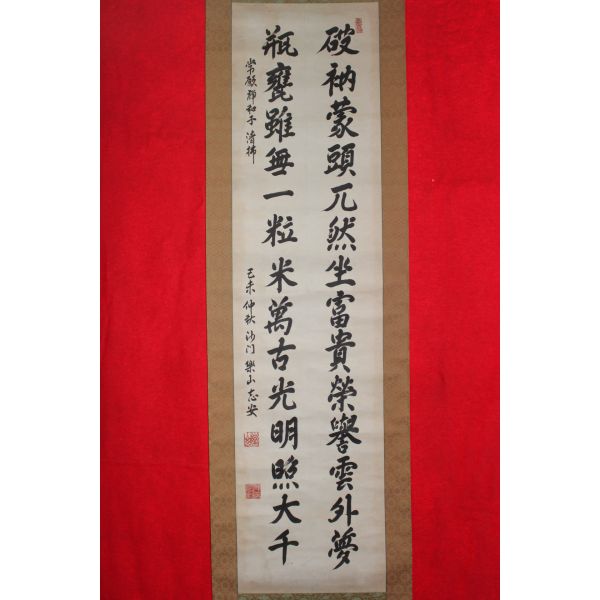 破衲蒙頭兀然坐富貴榮譽雲外夢
瓶甕雖無一粒米萬古光明照大千
己未 仲秋 沙门 樂山 志安